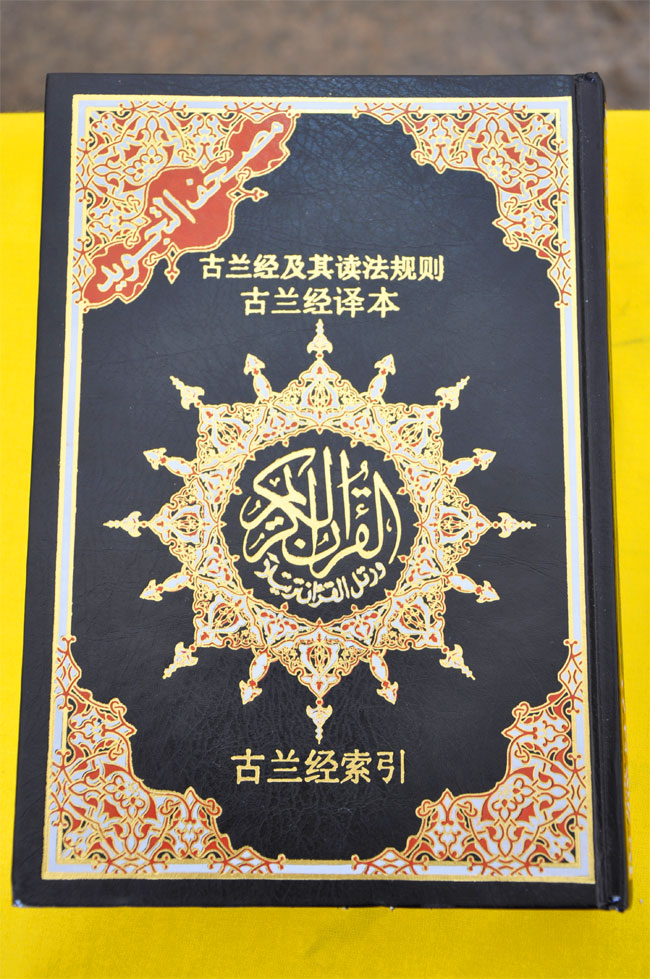 مصحف التجويد
古兰经及其读法规则
古兰经译本
القرآن الكريم
ورتل القرآن ترتيلا
古兰经索引